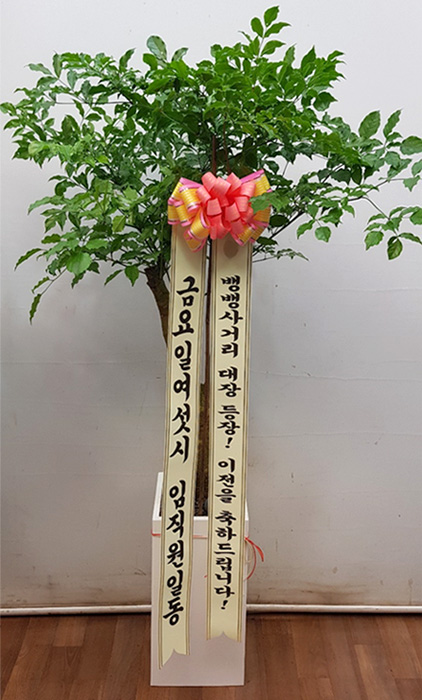 뱅뱅사거리 대장 등장! 이전을 축하드립니다!
금요일여섯시 임직원일동